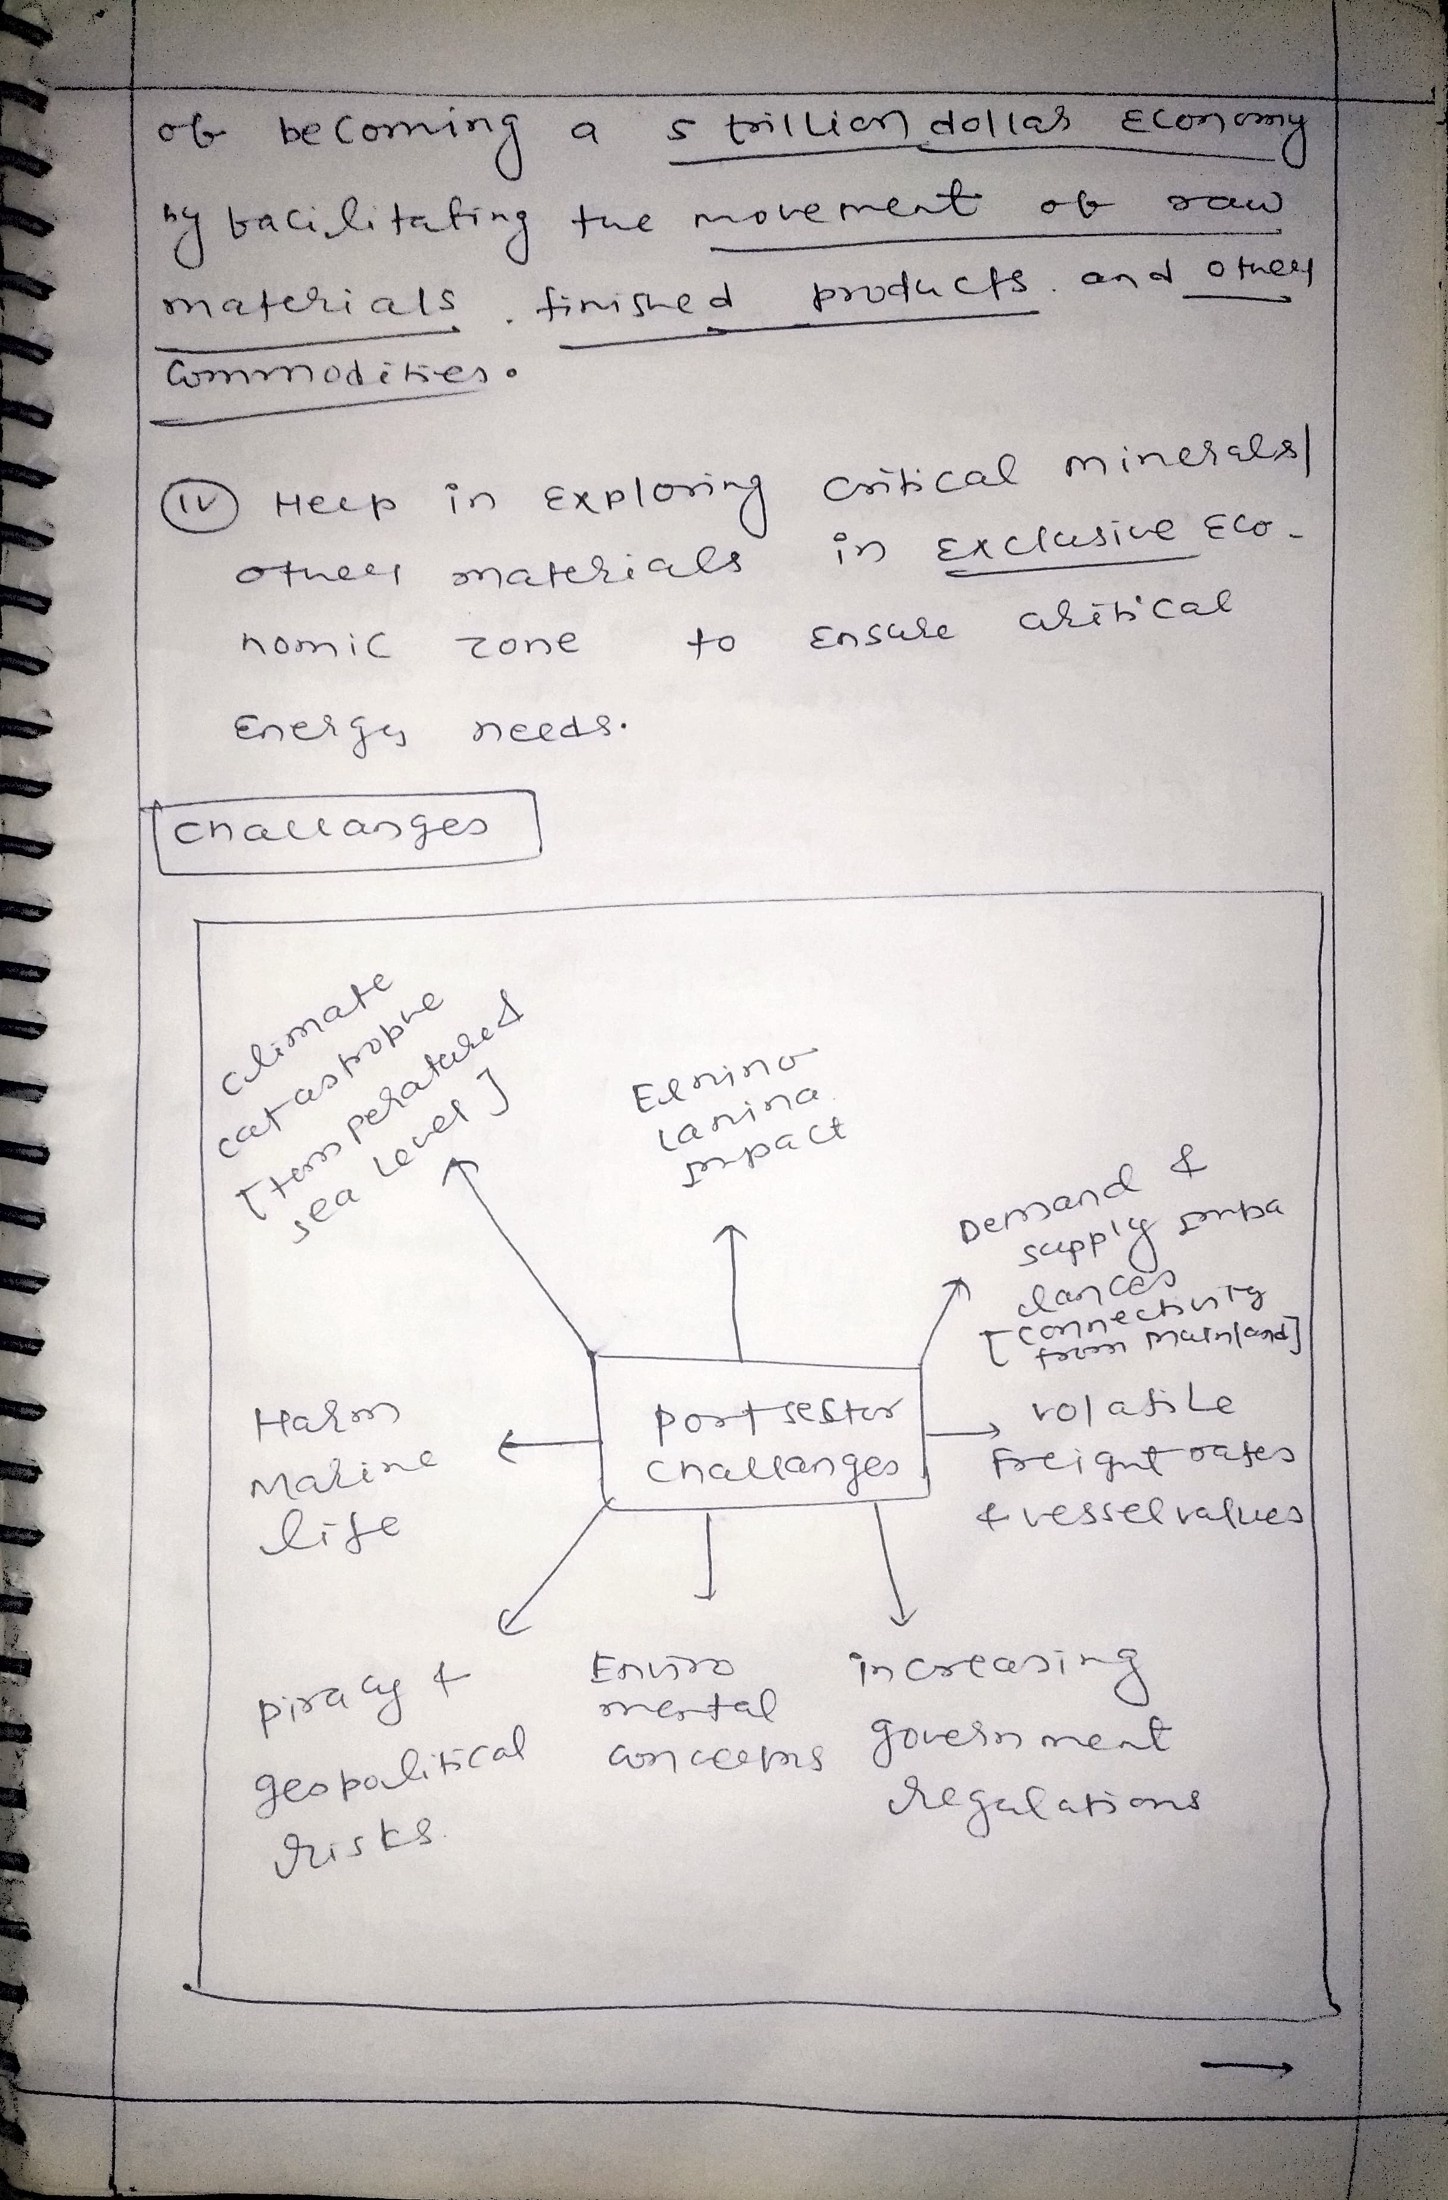 of becoming a 5 trillion dollar Economy
by facilitating the movement of raw
materials, finished products and other
commodities.
(iv) Help in Exploring critical minerals/
other materials in Exclusive Eco-
nomic zone to Ensure critical
Energy needs.
Challanges
climate
catastrophe
[temperature &
sea level]
Elnino
lanina
impact
Demand &
supply imba
lances
[connectivity
from mainland]
Harm
Marine
life
port sector
challanges
volatile
Freight rates
& vessel values
piracy &
geopolitical
risks.
Enviro
mental
concerns
increasing
government
regulations